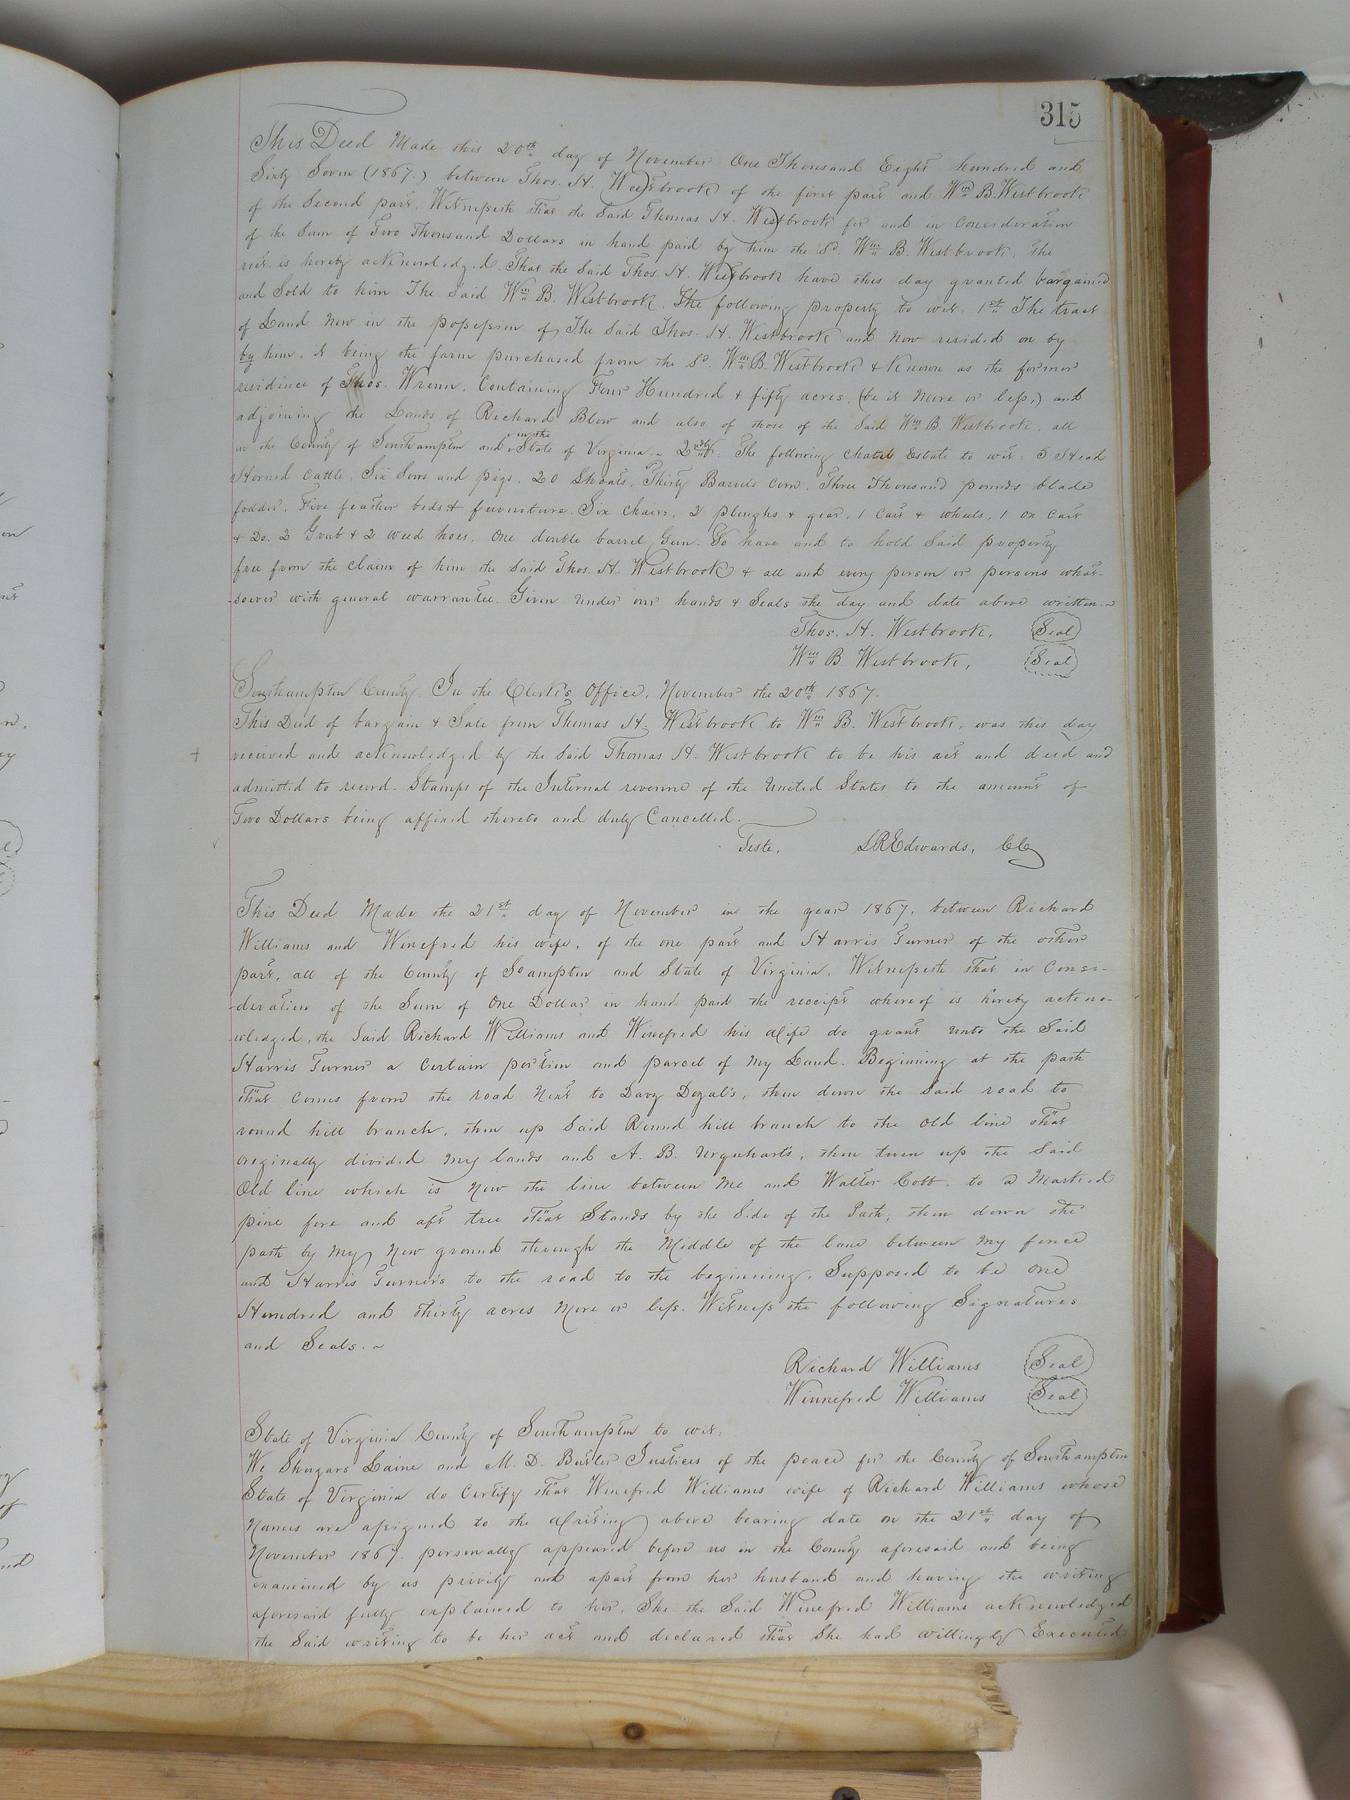 315
This Deed Made this 20th day of November One Thousand Eight hundred and
Sixty Seven (1867.) between Thos. H. Westbrook of the first part and Wm B. Westbrook
of the Second part. Witnesseth that the Said Thomas H. Westbrook for and in Consideration
of the Sum of Two Thousand Dollars in hand paid by him the Sd. Wm B. Westbrook. The
rect. is hereby acknowledged. That the Said Thos. H. Westbrook have this day granted bargained
and Sold to him The Said Wm B. Westbrook. The following property to wit. 1st The tract
of Land Now in the possession of The Said Thos. H. Westbrook and Now resided on by
by him. It being the farm purchased from the Sd. Wm B. Westbrook & Known as the former
residence of Thos. Wrenn. Containing Four Hundred & fifty acres, (be it More or less,) and
adjoining the Lands of Richard Blow and also of those of the Said Wm B. Westbrook. all
in the County of Southampton and in the State of Virginia. 2nd. The following Chatel Estate to wit. 5 Head
Horned Cattle, Six Sows and pigs. 20 Shoats, Thirty Barrels Corn. Three Thousand pounds blade
fodder. Five feather beds & furniture. Six Chairs, 2 ploughs & gear, 1 Cart & wheels, 1 Ox Cart
& Do. 2 Grub & 2 weed hoes, One double barrel Gun. To have and to hold Said property
free from the Claim of him the Said Thos. H. Westbrook & all and every person or persons what-
-soever with general warrantee. Given under our hands & Seals the day and date above written.
Thos. H. Westbrook, Seal
Wm B Westbrook, Seal
Southampton County. In the Clerk's Office, November the 20th 1867.
This Deed of bargain & Sale from Thomas H. Westbrook to Wm B. Westbrook. was this day
received and acknowledged by the Said Thomas H. Westbrook to be his act and deed and
admitted to record. Stamps of the Internal revenue of the United States to the amount of
Two Dollars being affixed thereto and duly Cancelled.
Teste. LREdwards, CC
This Deed Made the 21st day of November in the year 1867. between Richard
Williams and Winefred his wife, of the one part and Harris Turner of the other
part, all of the County of Soampton and State of Virginia. Witnesseth that in Consi-
-deration of the Sum of One Dollar in hand paid the receipt whereof is hereby ackno-
wledged, the Said Richard Williams and Winefred his Wife do grant unto the Said
Harris Turner a Certain portion and parcel of My Land. Beginning at the path
that comes from the road Next to Davy Doyal's, then down the Said road to
round hill branch, then up Said Round hill branch to the old line that
originally divided my lands and A. B. Urquharts, then turn up the Said
Old line which is Now the line between Me and Walter Cobb. to a Marked
pine fore and aft tree that Stands by the Side of the Path, then down the
path by My New ground through the Middle of the lane between my fence
and Harris Turners to the road to the beginning, Supposed to be One
Hundred and thirty acres More or less. Witness the following Signatures
and Seals.
Richard Williams Seal
Winnefred Williams Seal
State of Virginia County of Southampton to wit,
We Shugars Laine and M. D. Butler Justices of the peace for the County of Southampton
State of Virginia do Certify that Winefred Williams wife of Richard Williams whose
Names are assigned to the Writing above bearing date on the 21st day of
November 1867. personally appeared before us in the County aforesaid and being
examined by us privily and apart from her husband and having the writing
aforesaid fully explained to her. She the Said Winefred Williams acknowledged
the Said writing to be her act and declared that She had willingly Executed